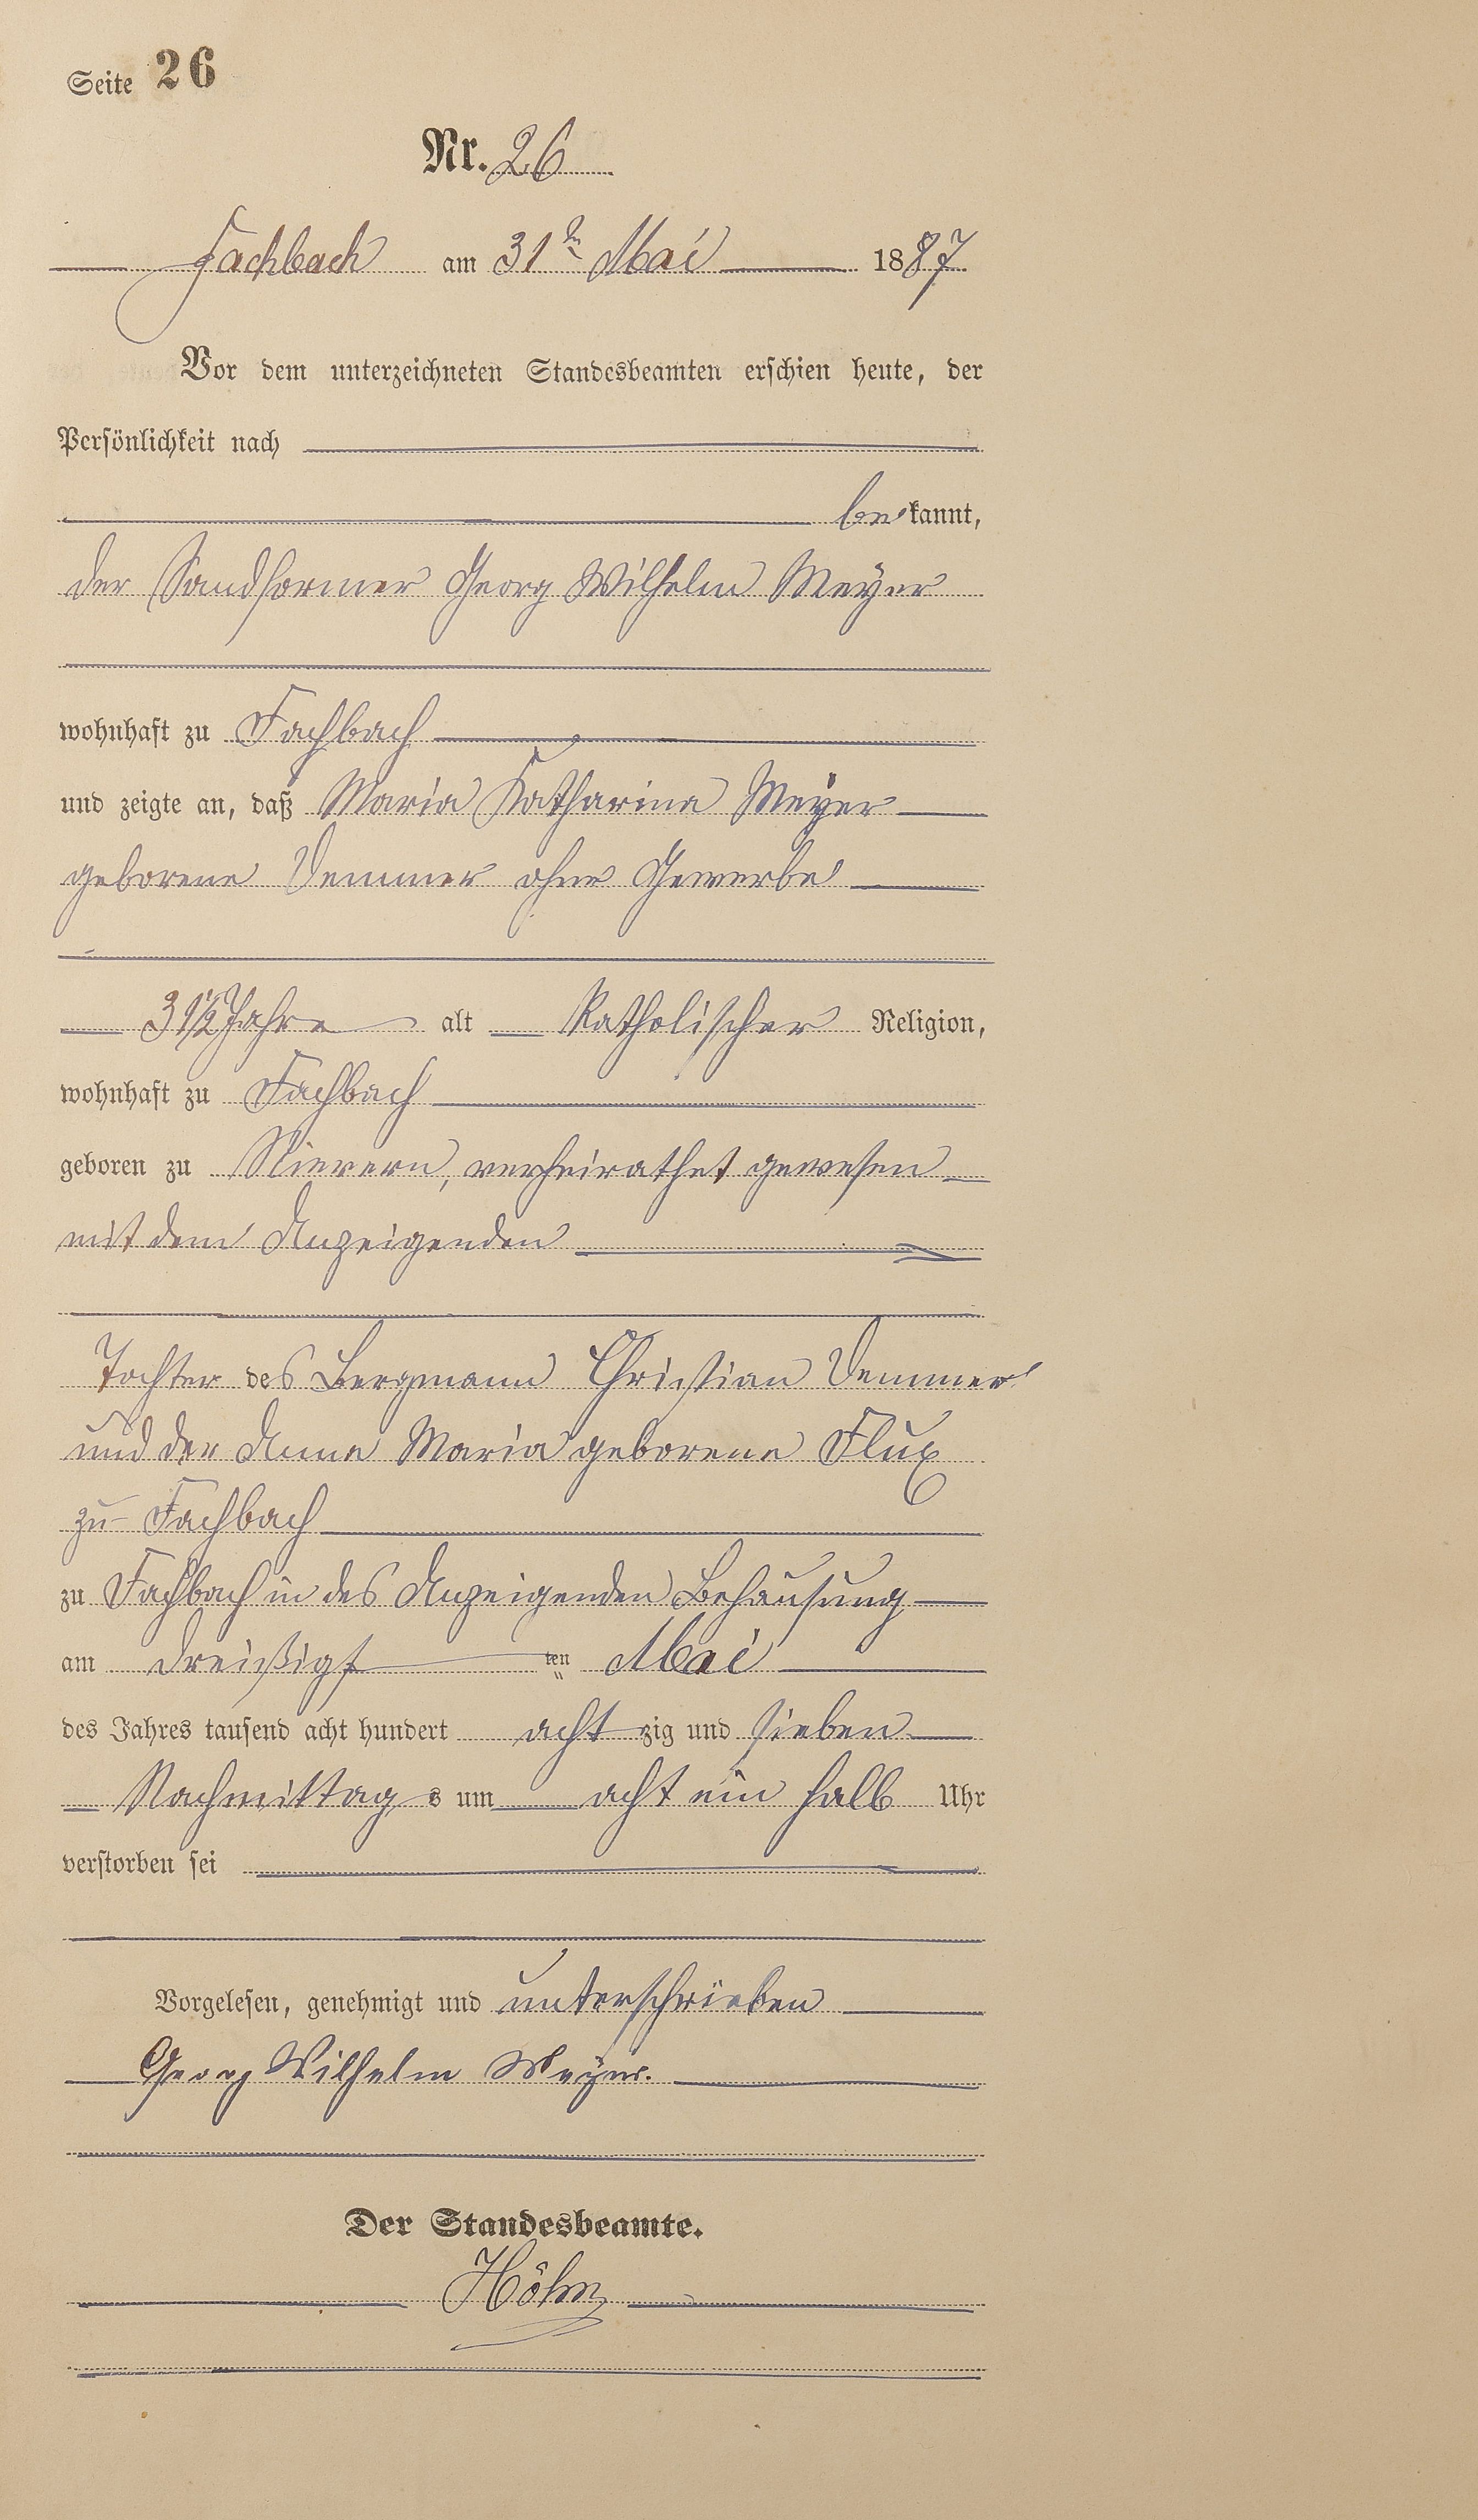 Seite 26
Nr. 26
Fachbach am 31ten Mai 1887
Vor dem unterzeichneten Standesbeamten erschien heute, der
Persönlichkeit nach
bekannt,
der Sandformer Georg Wilhelm Meyer
wohnhaft zu Fachbach
und zeigte an, daß Maria Katharina Meyer
geborene Demmer ohne Gewerbe
31½ Jahre alt Katholischer Religion,
wohnhaft zu Fachbach
geboren zu Nievern, verheirathet gewesen
mit dem Anzeigenden
Tochter des Bergmann Christian Demmer
und der Anna Maria geborene Flux
zu Fachbach
zu Fachbach in des Anzeigenden Behausung
am dreißigsten Mai
des Jahres tausend acht hundert achtzig und sieben
Nachmittags um acht ein halb Uhr
verstorben sei
Vorgelesen, genehmigt und unterschrieben
Georg Wilhelm Meyer.
Der Standesbeamte.
Höhn